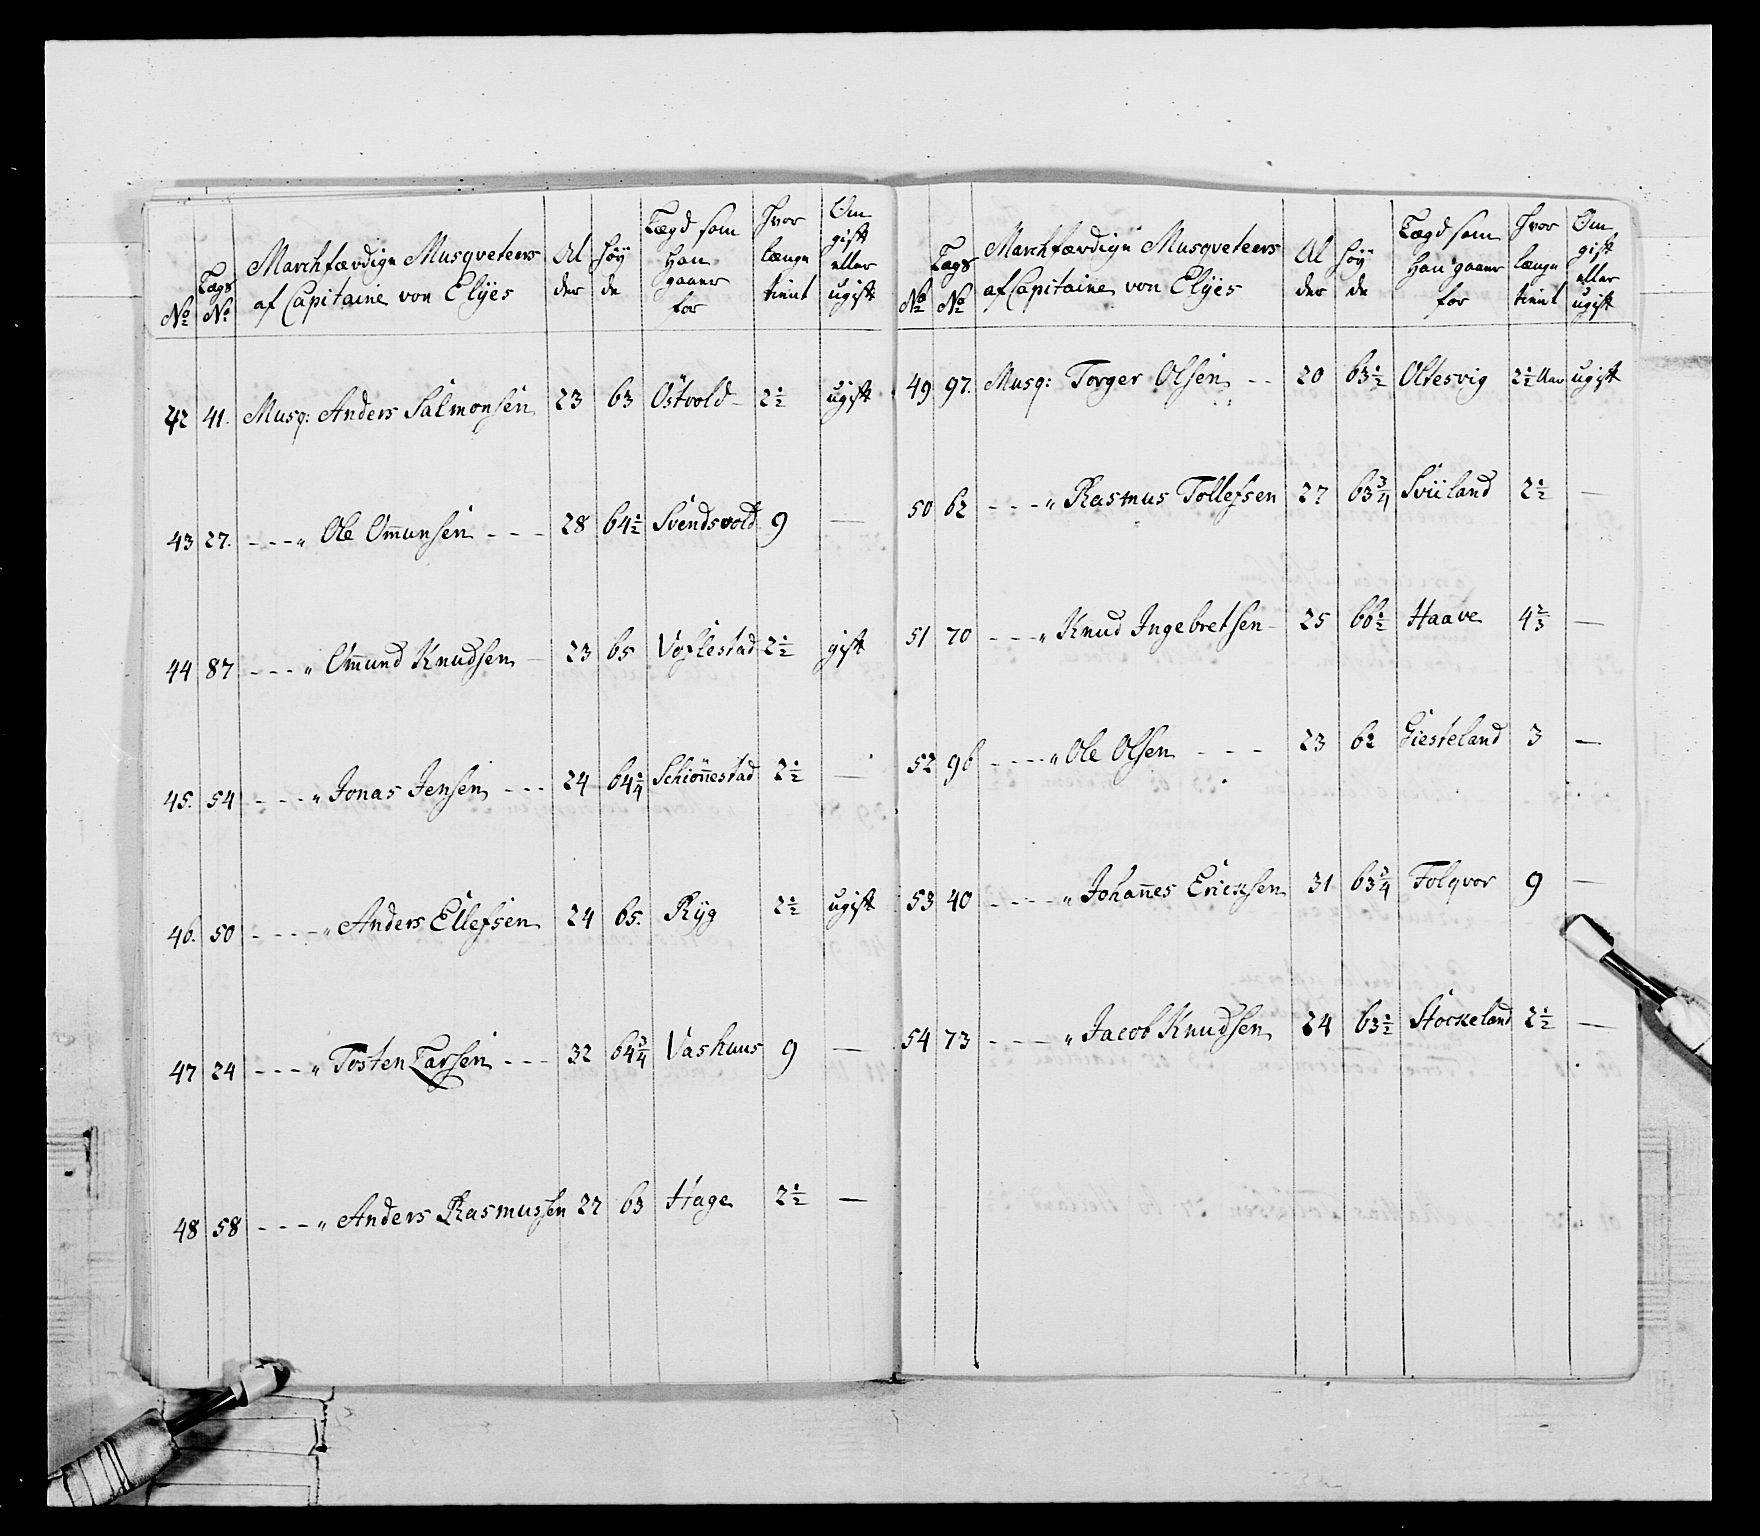 No
Lægs No
Marchfærdige Musqveteers
af Capitaine von Elÿes
Al
der
Høÿ
de
Lægd som
han
gaaer
for
hvor
længe
tient
Om
gift
eller
ugift
42 41. Musq: Anders Salmonsen 23 63 Östvold 2½ ugift
43 27. - - - " Ole Omunsen - - - 28 64½ Svendsvold 9 —
44 87 - - - " Omund Knudsen 23 65 2½ gift
45. 54 - - - " Jonas Jensen - - - 24 64¼ Schiönnestad 2½ —
46. 50 - - - - " Anders Ellefsen 24 65. Rÿg 2½ ugift
47 24 - - - " Tosten Larsen - - - 32 64¾ Vashuus 9 —
48 58 - - - " Anders Rasmussen 27 63 Hage 2½ —
No
Lægs No
Marchfærdige Musqveteers
af Capitaine von Elÿes
Al
der
Høÿ
de
Lægd som
han gaaer
for
hvor
længe
tient
Om
gift
eller
ugift
49 97. Musq: Torger Olsen - - 20 63½ Oltesvig 2½ Aar ugift
50 62 - - - " Rasmus Tollefsen 27 63¾ Sviland 2½ —
51 70 - - - " Knud Ingebretsen 25 66½ Haave 4⅔ —
52 96 - - - - " Ole Olsen - - - 23 62 Giesteland 3 —
53 40 - - - - " Johannes Ericksen 31 63¾ Folqvor 9 —
54 73 - - - - " Jacob Knudsen 24 63½ Stockeland 2½ —